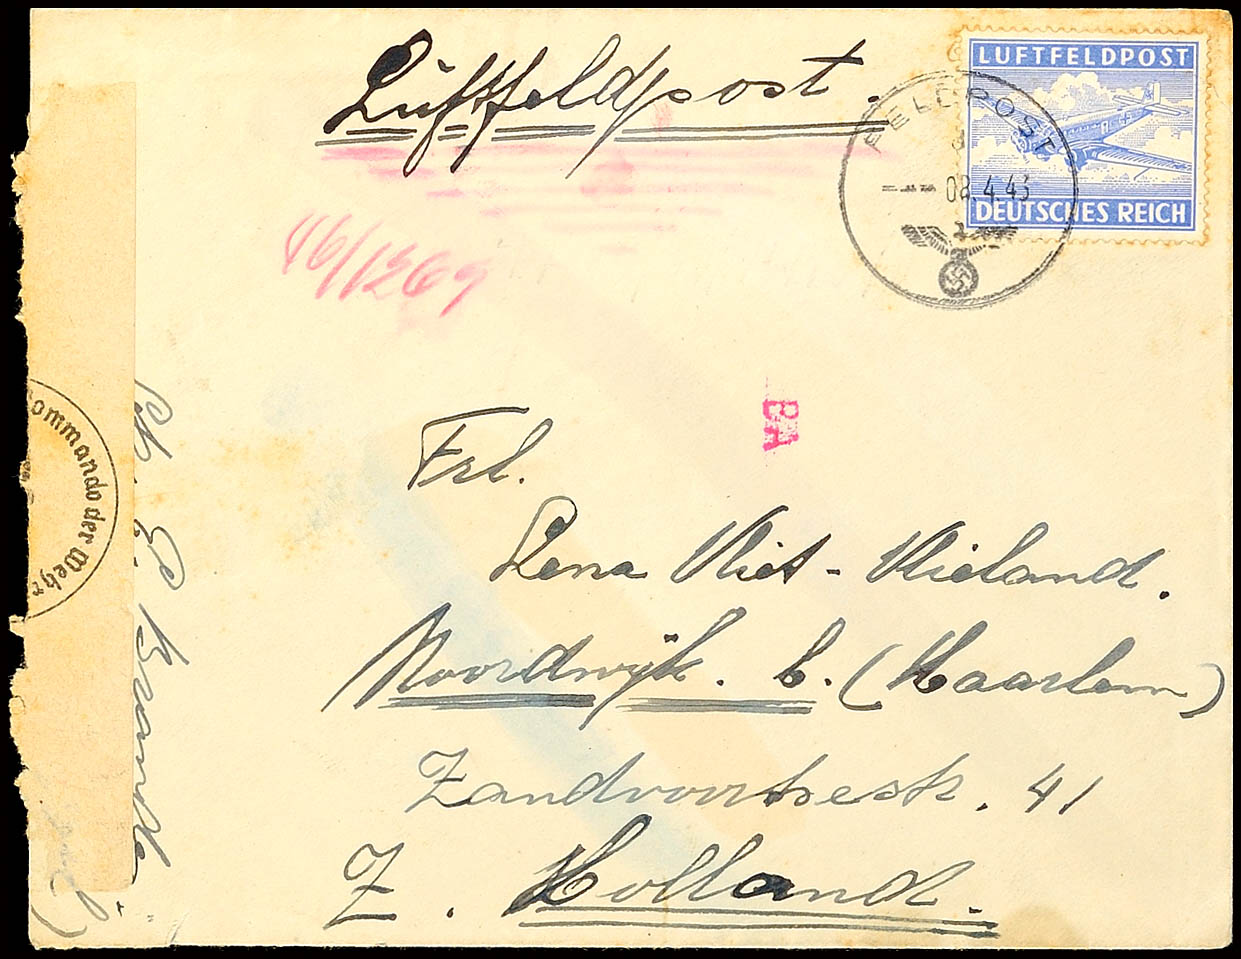 Luftfeldpost.
LUFTFELDPOST
DEUTSCHES REICH
FELDPOST
08.4.43
46/1269
BA
Frl.
Lena Vliet-Vlieland.
Noordwijk. b. (Haarlem)
41
Z. Holland.
ommando der Wehr